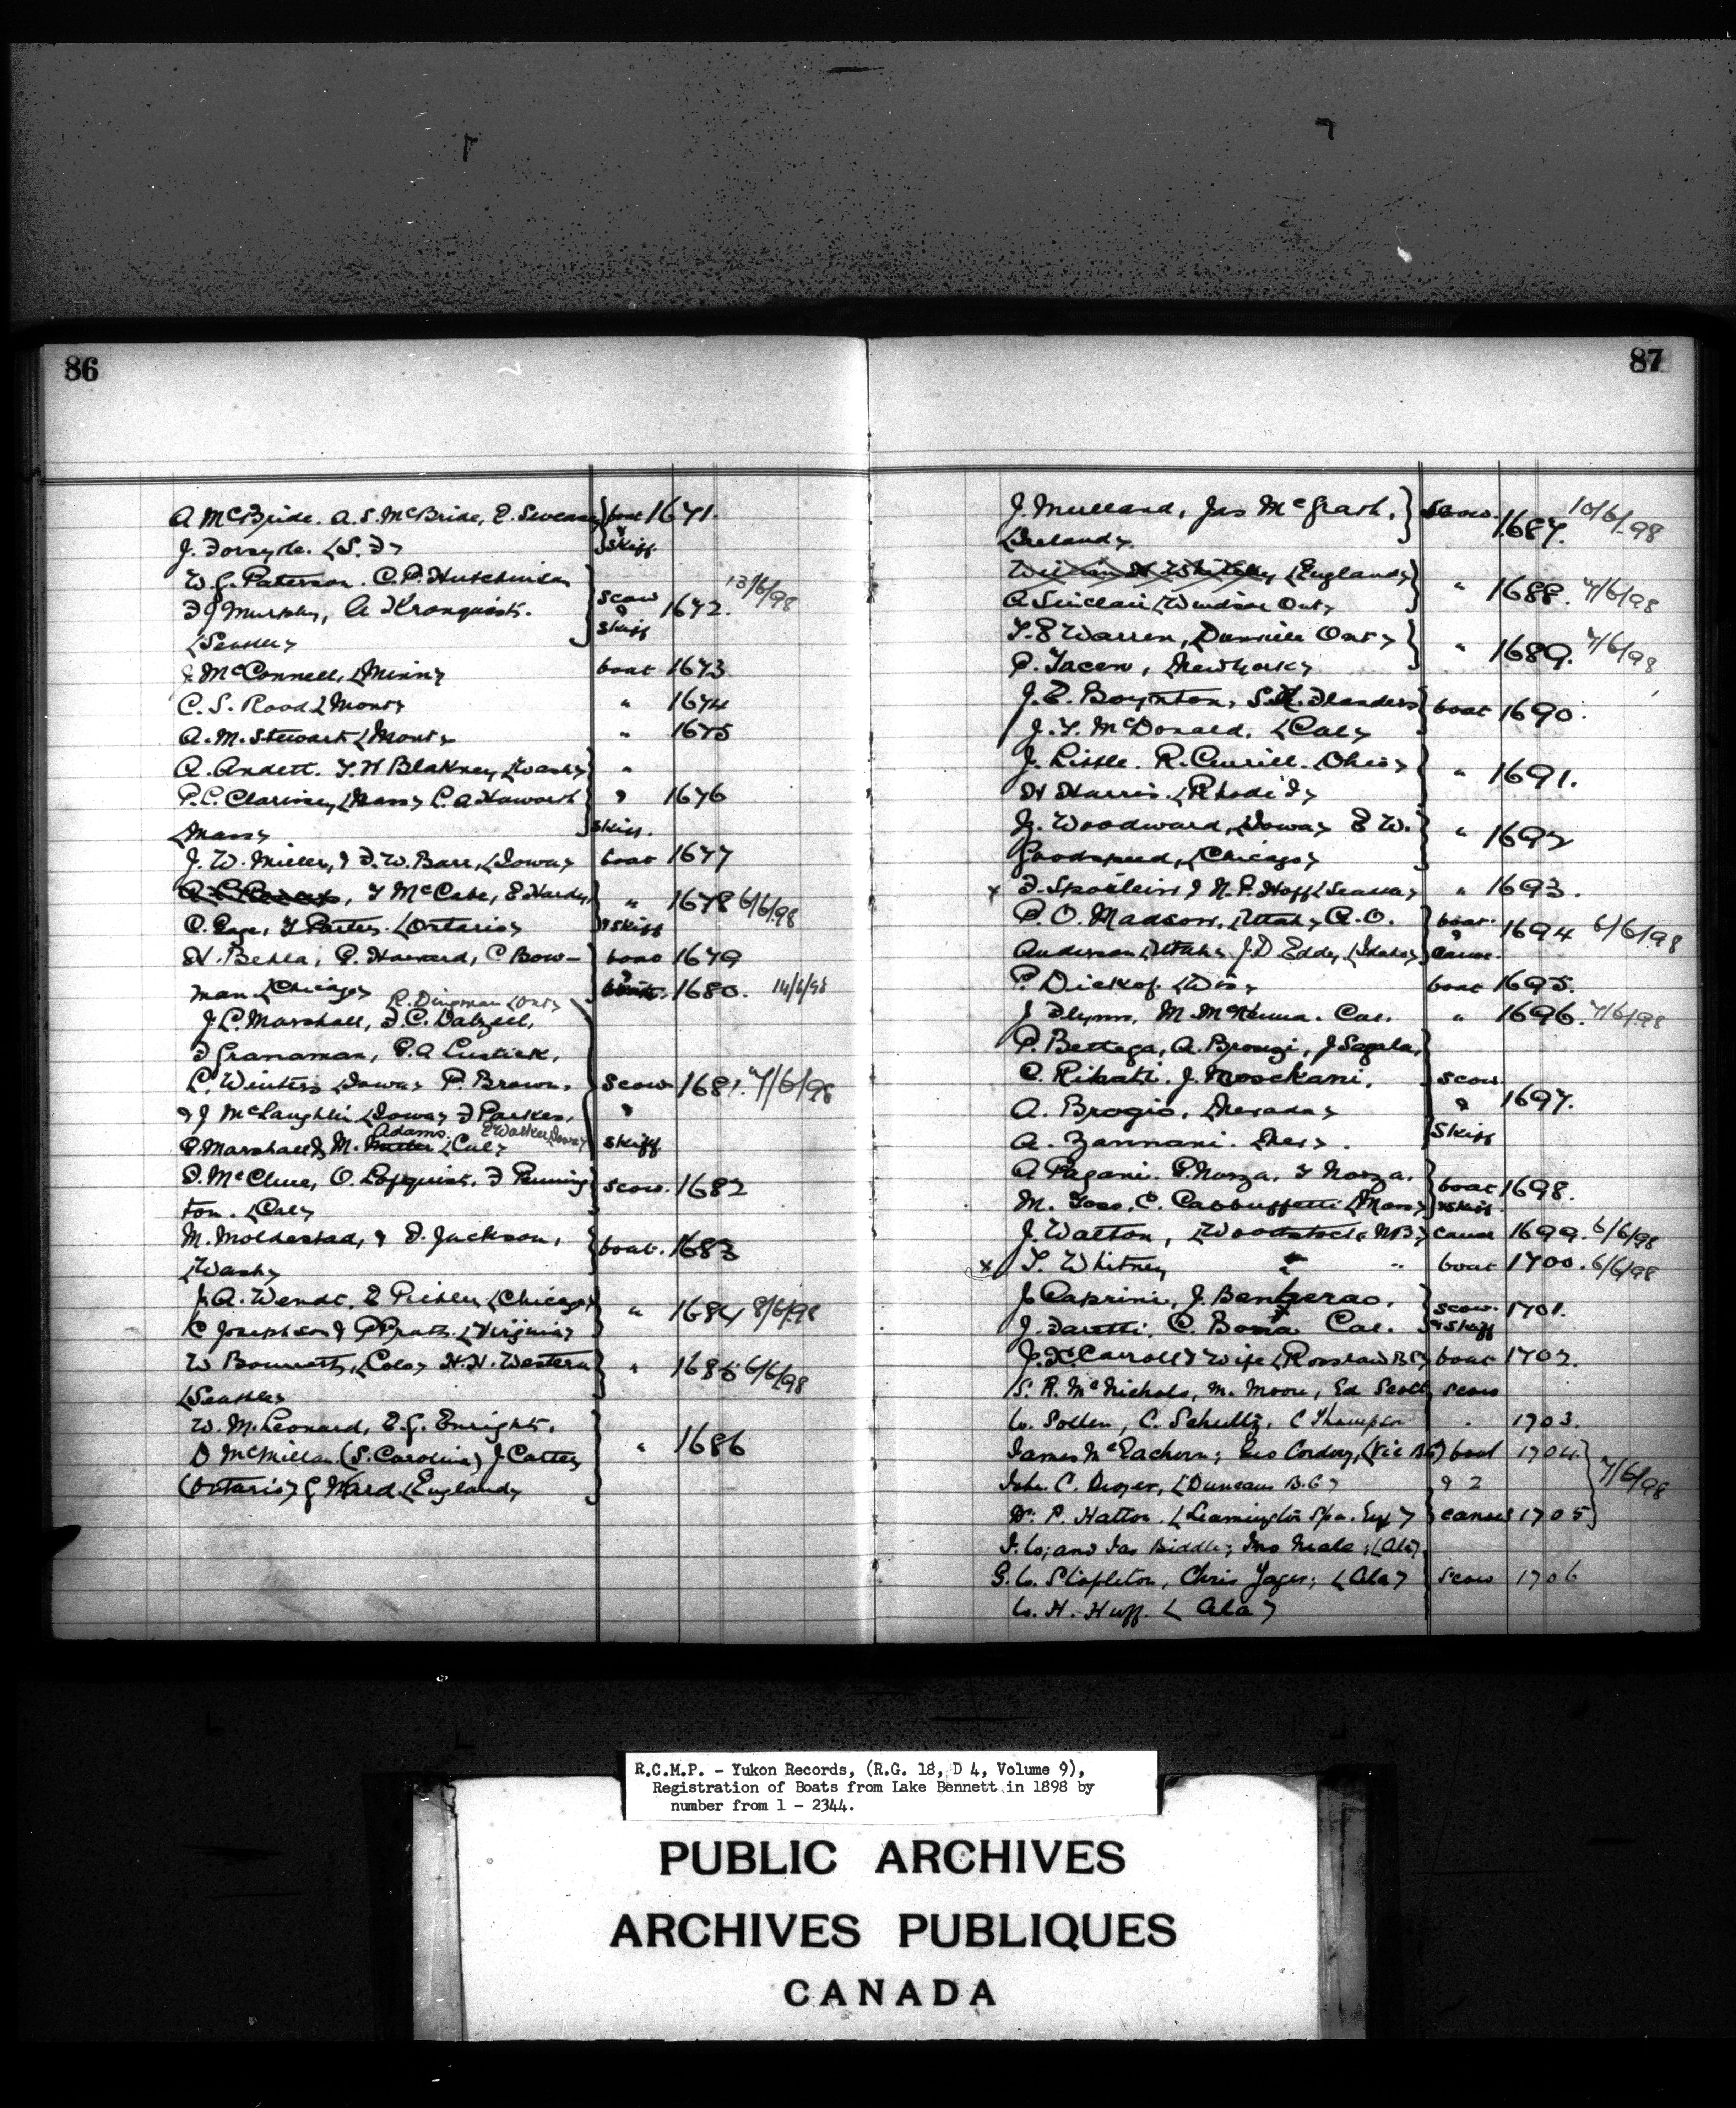 86
A McBride. A. S. McBride, E. Swease } boat 1671.
J. Forsyth. (S. F) & skiff
W. G. Paterson. C. P. Hutchinson
F J Murphy, A Kronquist. scow & skiff 1672. 13/6/98
(Seattle)
J McConnell, (Minn) boat 1673
C. S. Rood (Mont) " 1674
A. M. Stewart (Mont) " 1675
A. Andett. T. H Blakney (Wash) "
P. C. (Mass) C. A Haworth & 1676
(Mass) skiff.
J. W. Miller, & F. W. Barr, (Iowa) boat 1677
T McCabe, E Hardy, " 1678 6/6/98
C. Page, T Porter. (Ontario) & skiff
H. Behla, P. Howard, C. Bow- boat 1679
man (Chicago) 1680. 14/6/98
R. Dingman (Ont)
J. L. Marshall, F. C. Dalziel,
F Granaman, G. A Lustick,
L. Winters (Iowa) P. Brown, scow 1681. 7/6/98
& J McLaughlin (Iowa) F Parker, &
Adams. E Walker (Iowa)
P. Marshall & M. (Cal) skiff
D. McClure, O. Lofquist. F Penning scow. 1682
ton. (Cal)
M. Moldestad, & F. Jackson, boat. 1683
(Wash)
J. A. Wendt. E Pichler (Chicago) " 1684 8/6/98
C Josephson & P Pratt. (Virginia)
W Bonnett, (Colo) H. H. Western " 1685 6/6/98
(Seattle)
W. M. Leonard, E. G. Enright. " 1686
D McMillan (S. Carolina) J. Carter
(Ontario) G Ward (England)
87
J. Mullard, Jas McGrath, } Scow. 1687. 10/6/98
(Ireland)
William H Whiteley (England) " 1688. 7/6/98
A Sinclair (Windsor Ont)
T. E Warren, (Dunville Ont) " 1689. 7/6/98
P. Tacen, (New York)
J. E. Boynton, S. H. Flanders boat 1690.
J. T. McDonald. (Cal)
J. Little. R. Currill. (Ohio) " 1691.
H Harris. (Rhode I)
J. Woodward, (Iowa) E W. " 1692
Goodspeed, (Chicago)
x F. Spoerlein & N. P. Hoff (Seattle) " 1693.
P. O. Madson, (Utah) A. O. boat & 1694 6/6/98
Anderson (Utah) J. D. Eddy, (Idaho) canoe.
P. Dickof (Wis) boat 1695.
J Flynn, M. McKenna. Cal. " 1696. 7/6/98
P. Bettega, A. Brougi, J Segala,
C. Rihati. J. Moschani, scow
A. Brogio, (Nevada) & 1697.
A. Zannani. (Nev) Skiff
A Pagani. P. Norza, T Norza, boat 1698.
M. Toso, C. Cabbuffetti (Mass) & Skiff.
J. Walton, (Woodstock N.B.) canoe 1699. 6/6/98
x T. Whitney " " boat 1700. 6/6/98
J Caprini, J. Bentzerao, scow. 1701.
J. Faretti, C. Bosia Cal. & Skiff
J. H. Carroll & Wife (Rossland B C) boat 1702.
S. R. McNichols, M. Moon, Ed Scott scow
W. Sollen, C. Schultz, C Thompson " 1703.
James McEachern; Geo Cordory, (Vic BC) boat 1704
John C. Dwyer, (Duncans B. C) & 2 7/6/98
Dr. P. Hatton. (Leamington Spa. Eng) canoes 1705
J. W; and Jas Biddle; Jno Neale; (Ala)
G. W. Stapleton, Chris Yager; (Ala) scow 1706
W. H. Huff. (Ala)
R.C.M.P. - Yukon Records, (R.G. 18, D 4, Volume 9),
Registration of Boats from Lake Bennett in 1898 by
number from 1 - 2344.
PUBLIC ARCHIVES
ARCHIVES PUBLIQUES
CANADA